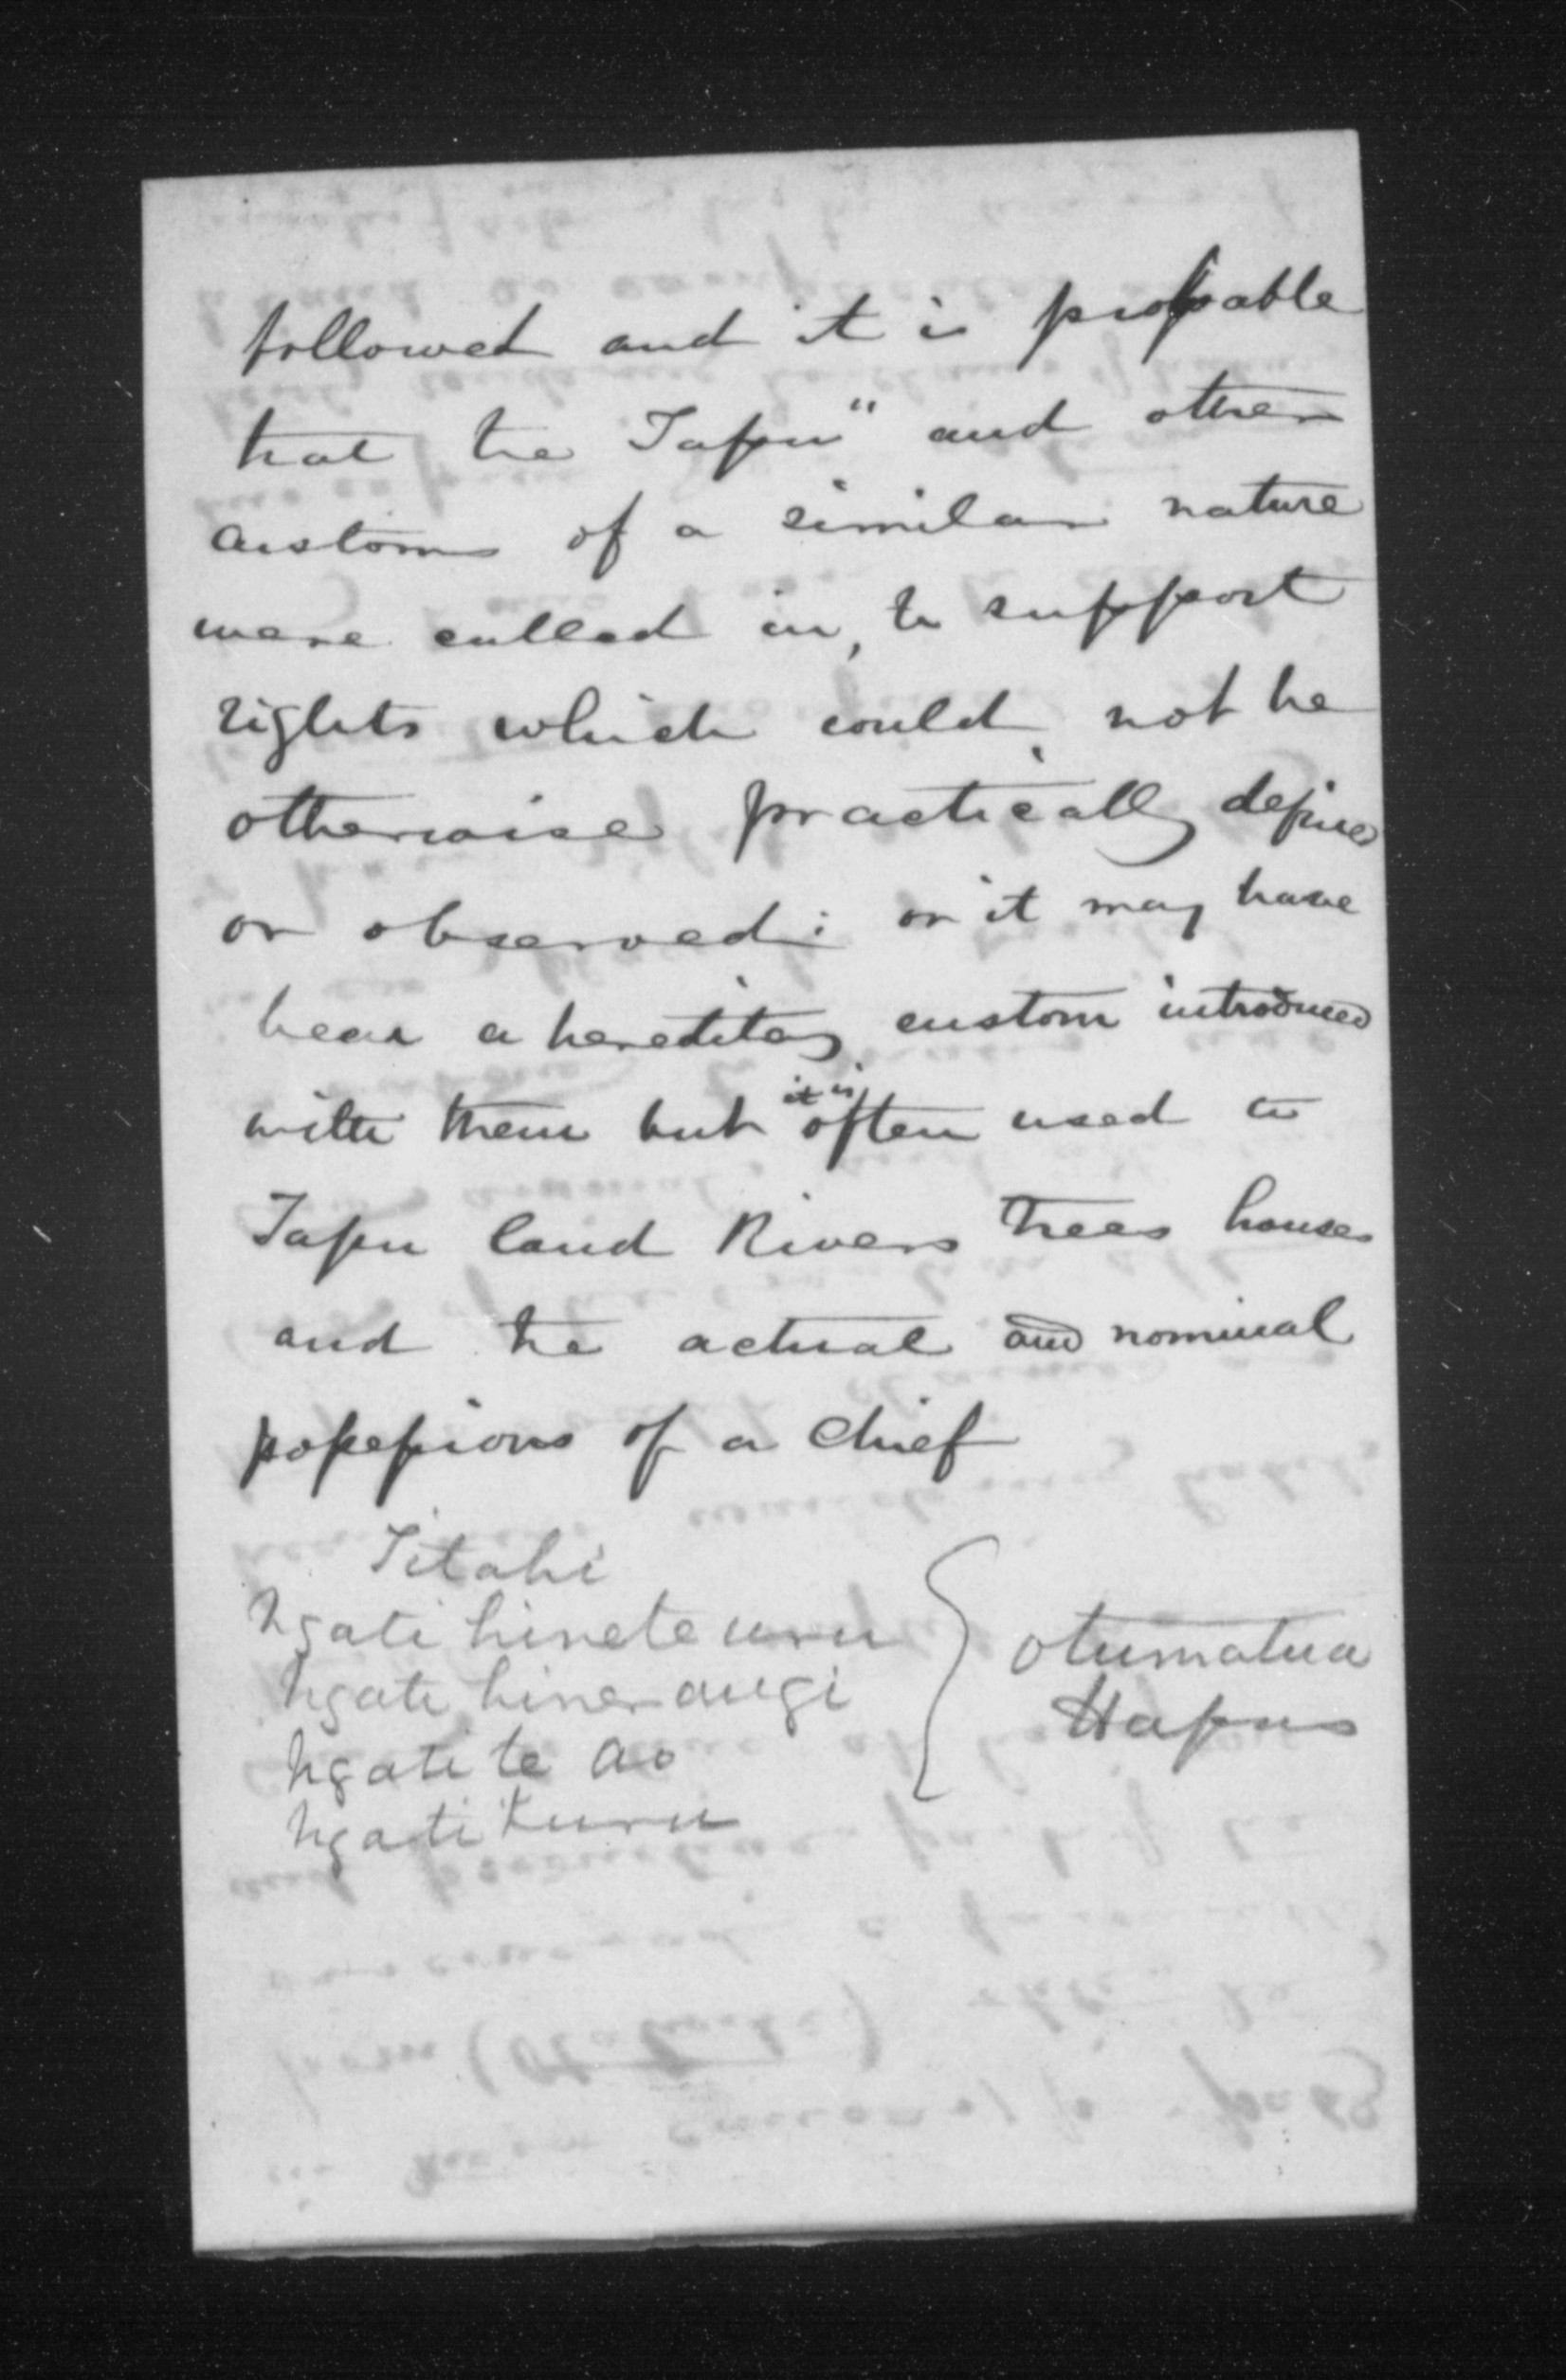 followed and it is probable
that the Tapu" and other
customs of a similar nature
were called in, to support
rights which could not be
otherwise practically define
or observed: or it may have
been a hereditary custom introduced
with them but it is often used to
Tapu land Rivers trees houses
and the actual and nominal
possessions of a chief
Titahi
Ngati hinete uru
Ngati hinerangi
Ngati te Ao
Ngati Kuru
Otumatua
Hapus